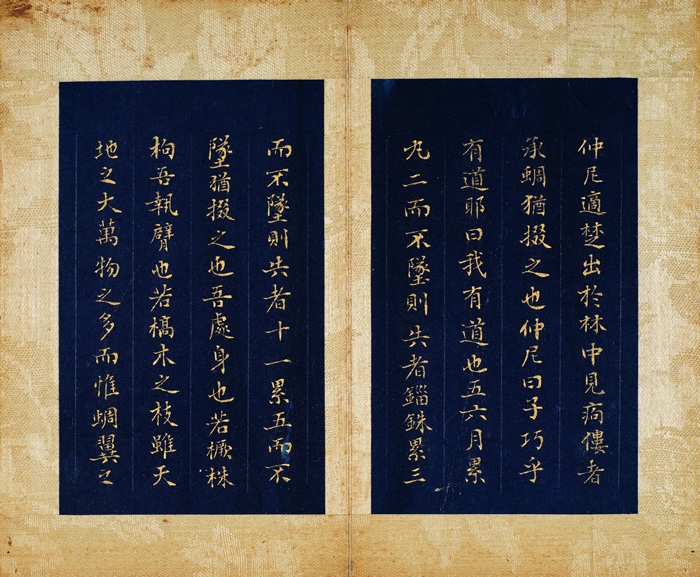 仲尼適楚出於林中見痀僂者
承蜩猶掇之也仲尼曰子巧乎
有道耶曰我有道也五六月累
丸二而不墜則失者錙銖累三
而不墜則失者十一累五而不
墜猶掇之也吾處身也若橛株
枸吾執臂也若槁木之枝雖天
地之大萬物之多而惟蜩翼之